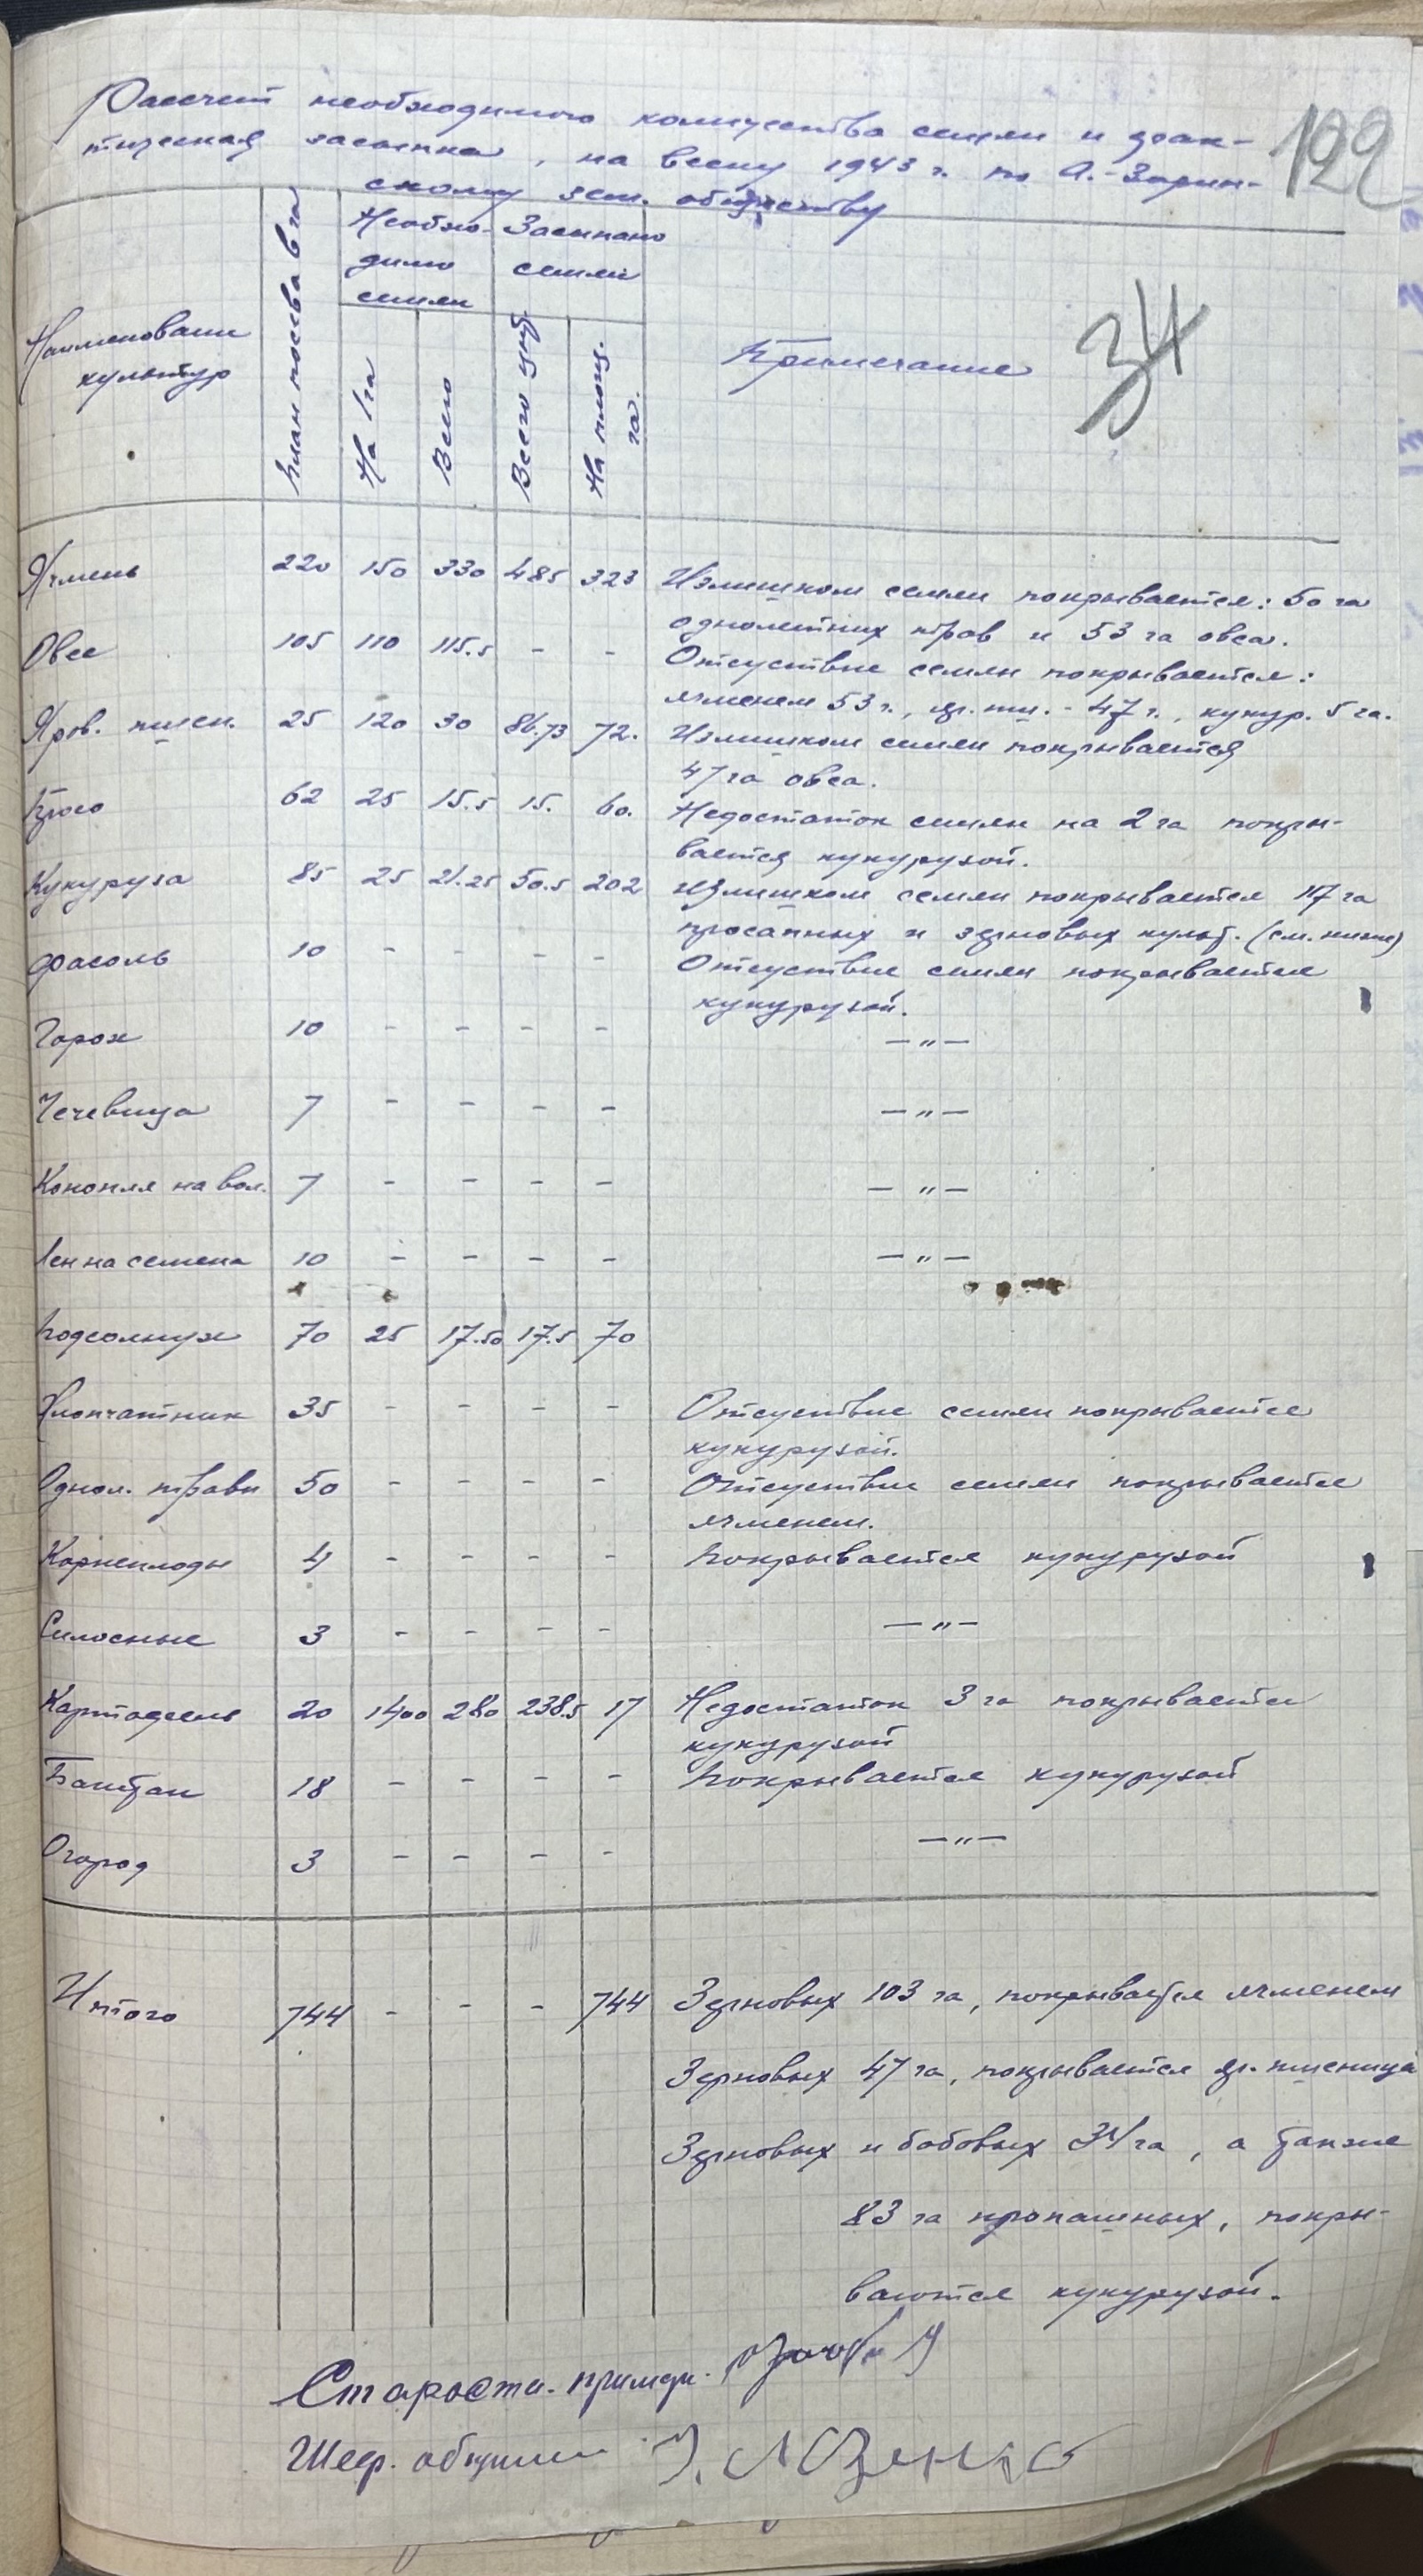 Рассчет необходимого количества семян и фак-
тическая засыпка, на весну 1943 г. по А.-Зарин-
скому зем. обществу
122
34
Наименовани культур | План посева в га | Необхо-димо семян | Засыпано семян | Примечание
На 1 га | Всего | Всего цнт. | На площ. га.
Ячмень 220 150 330 485 323 Излишком семян покрывается: 50 га
однолетних трав и 53 га овса.
Овес 105 110 115.5 - - Отсуствие семян покрывается:
ячменем 53 г., яр. пш. - 47 г., кукур. 5 га.
Яров. пшен. 25 120 30 86.73 72. Излишком семян покрывается
47 га овса.
Просо 62 25 15.5 15. 60. Недостаток семян на 2 га покры-
вается кукурузой.
Кукуруза 85 25 21.25 50.5 202 излишком семян покрывается 117 га
просапных и зерновых культ. (см. ниже)
Фасоль 10 - - - - Отсуствие семян покрывается
кукурузой.
Горох 10 - - - - — „ —
Чечевица 7 - - - - — „ —
Конопля на вол. 7 - - - - — „ —
Лен на семена 10 - - - - — „ —
Подсолнух 70 25 17.50 17.5 70
Хлопчатник 35 - - - - Отсуствие семян покрывается
кукурузой.
Однол. травы 50 - - - - Отсуствие семян покрывается
ячменем.
Корнеплоды 4 - - - - Покрывается кукурузой
Силосные 3 - - - - — „ —
Картофель 20 1400 280 238.5 17 Недостаток 3 га покрывается
кукурузой
Баштан 18 - - - - Покрывается кукурузой
Огород 3 - - - - — „ —
Итого 744 - - - 744 Зерновых 103 га, покрывается ячменем
Зерновых 47 га, покрывается яр. пшеница
Зерновых и бобовых 34 га, а также
83 га пропашных, покры-
ваются кукурузой.
Староста.
Шеф. общини